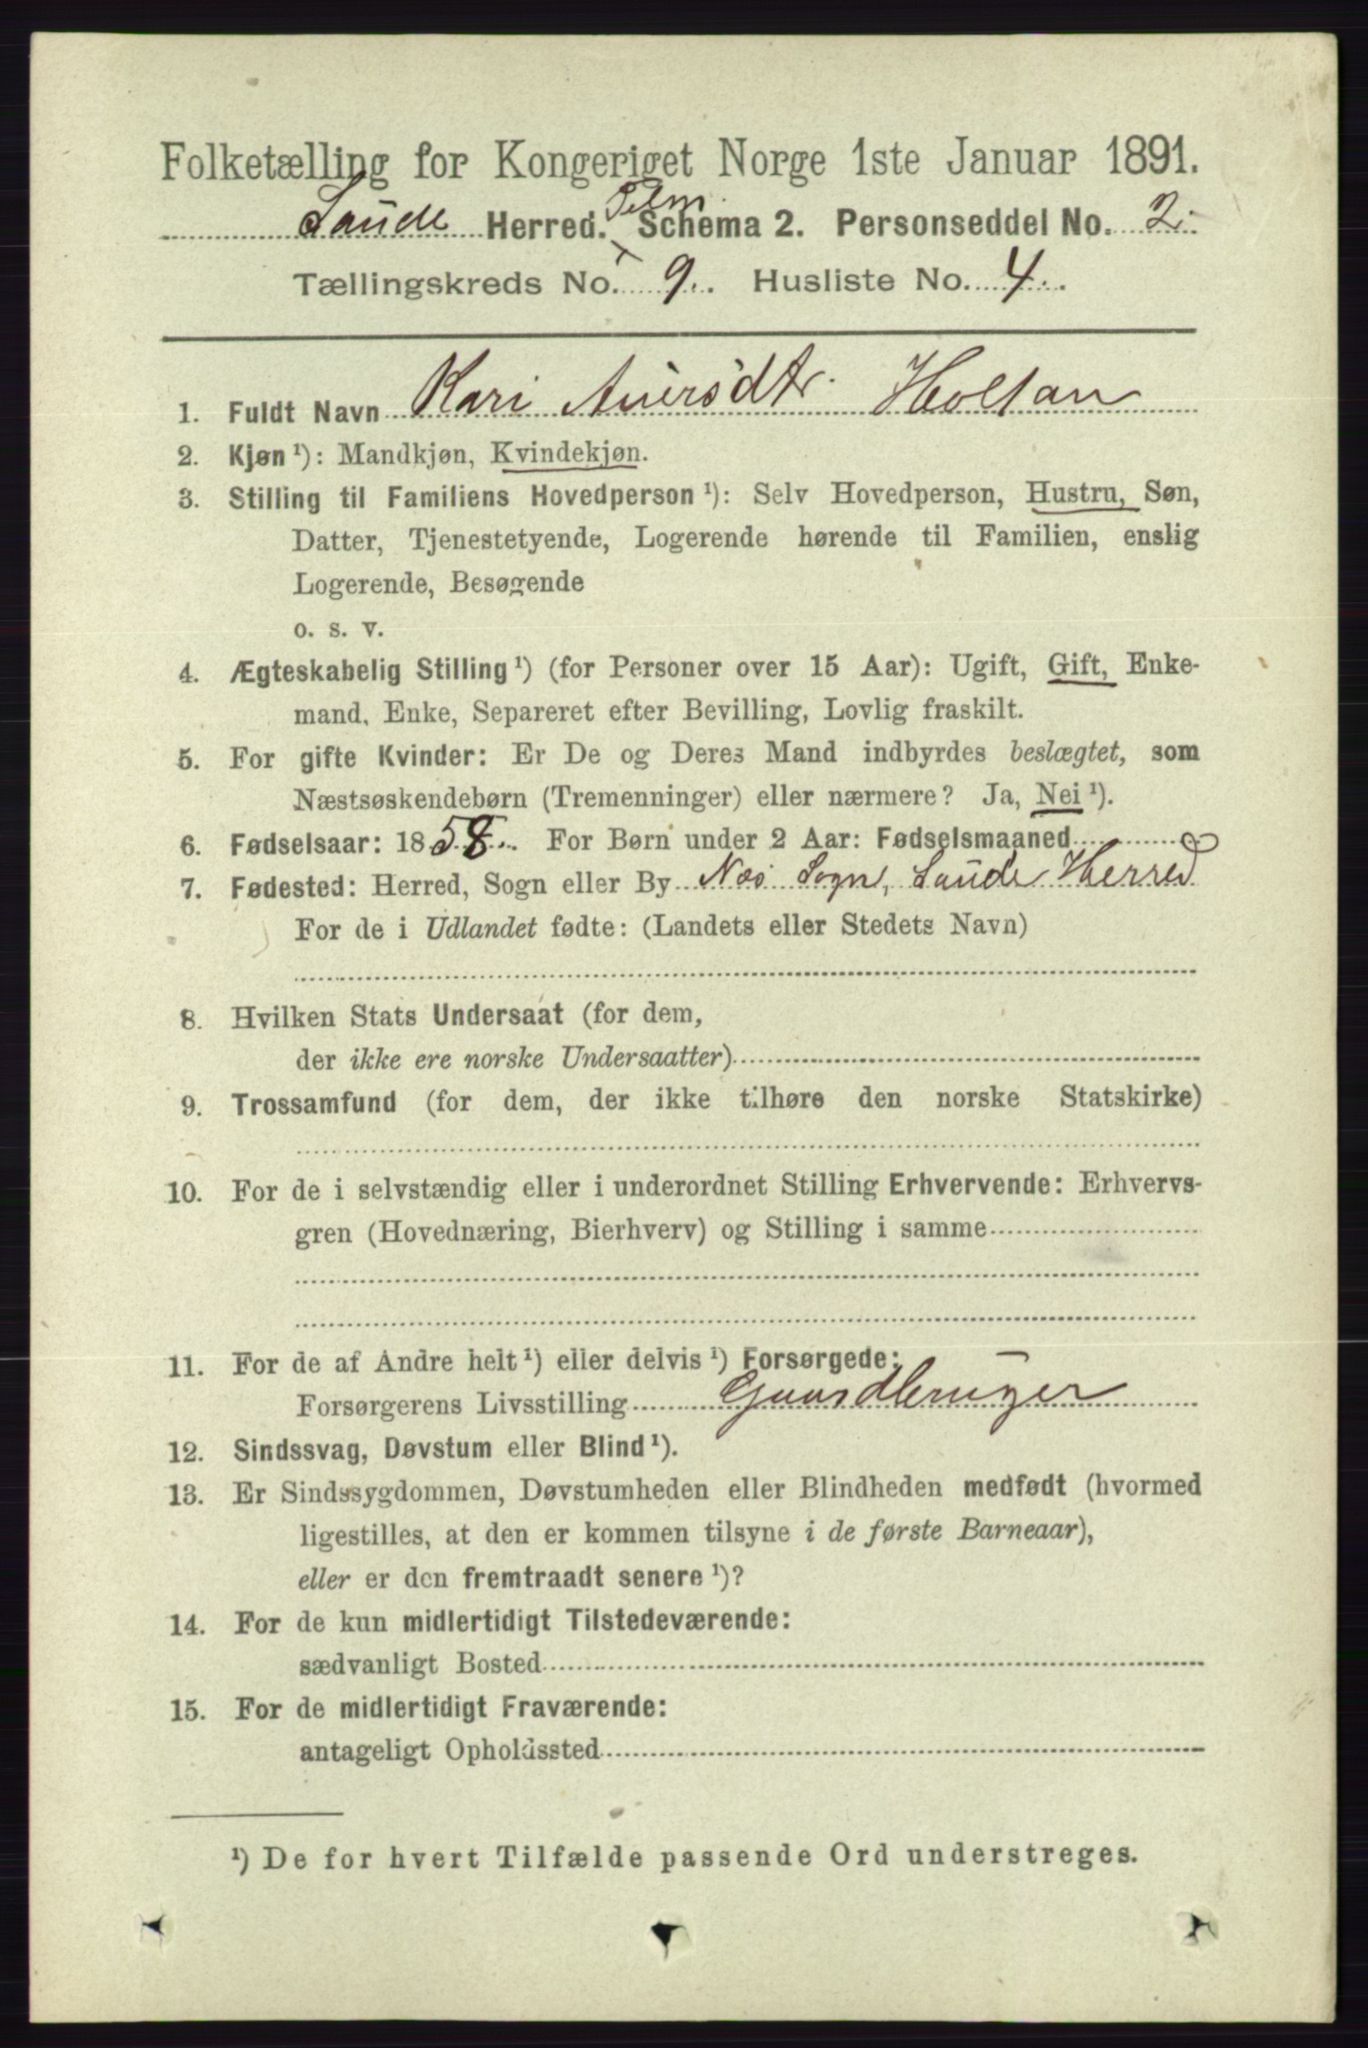 Folketælling for Kongeriget Norge 1ste Januar 1891.
Saude Herred. Telm. Schema 2. Personseddel No. 2.
Tællingskreds No. 9. Husliste No. 4.
1. Fuldt Navn Kari Aversdtr. Holtan
2. Kjøn ¹): Mandkjøn, Kvindekjøn.
3. Stilling til Familiens Hovedperson ¹): Selv Hovedperson, Hustru, Søn,
Datter, Tjenestetyende, Logerende hørende til Familien, enslig
Logerende, Besøgende
o. s. v.
4. Ægteskabelig Stilling ¹) (for Personer over 15 Aar): Ugift, Gift, Enke-
mand, Enke, Separeret efter Bevilling, Lovlig fraskilt.
5. For gifte Kvinder: Er De og Deres Mand indbyrdes beslægtet, som
Næstsøskendebørn (Tremenninger) eller nærmere? Ja, Nei ¹).
6. Fødselsaar: 1858. For Børn under 2 Aar: Fødselsmaaned
7. Fødested: Herred, Sogn eller By Nes Sogn, Saude Herred
For de i Udlandet fødte: (Landets eller Stedets Navn)
8. Hvilken Stats Undersaat (for dem,
der ikke ere norske Undersaatter)
9. Trossamfund (for dem, der ikke tilhøre den norske Statskirke)
10. For de i selvstændig eller i underordnet Stilling Erhvervende: Erhvervs-
gren (Hovednæring, Bierhverv) og Stilling i samme
11. For de af Andre helt ¹) eller delvis ¹) Forsørgede:
Forsørgerens Livsstilling Gaardbruger
12. Sindssvag, Døvstum eller Blind ¹).
13. Er Sindssygdommen, Døvstumheden eller Blindheden medfødt (hvormed
ligestilles, at den er kommen tilsyne i de første Barneaar),
eller er den fremtraadt senere ¹)?
14. For de kun midlertidigt Tilstedeværende:
sædvanligt Bosted
15. For de midlertidigt Fraværende:
antageligt Opholdssted
¹) De for hvert Tilfælde passende Ord understreges.